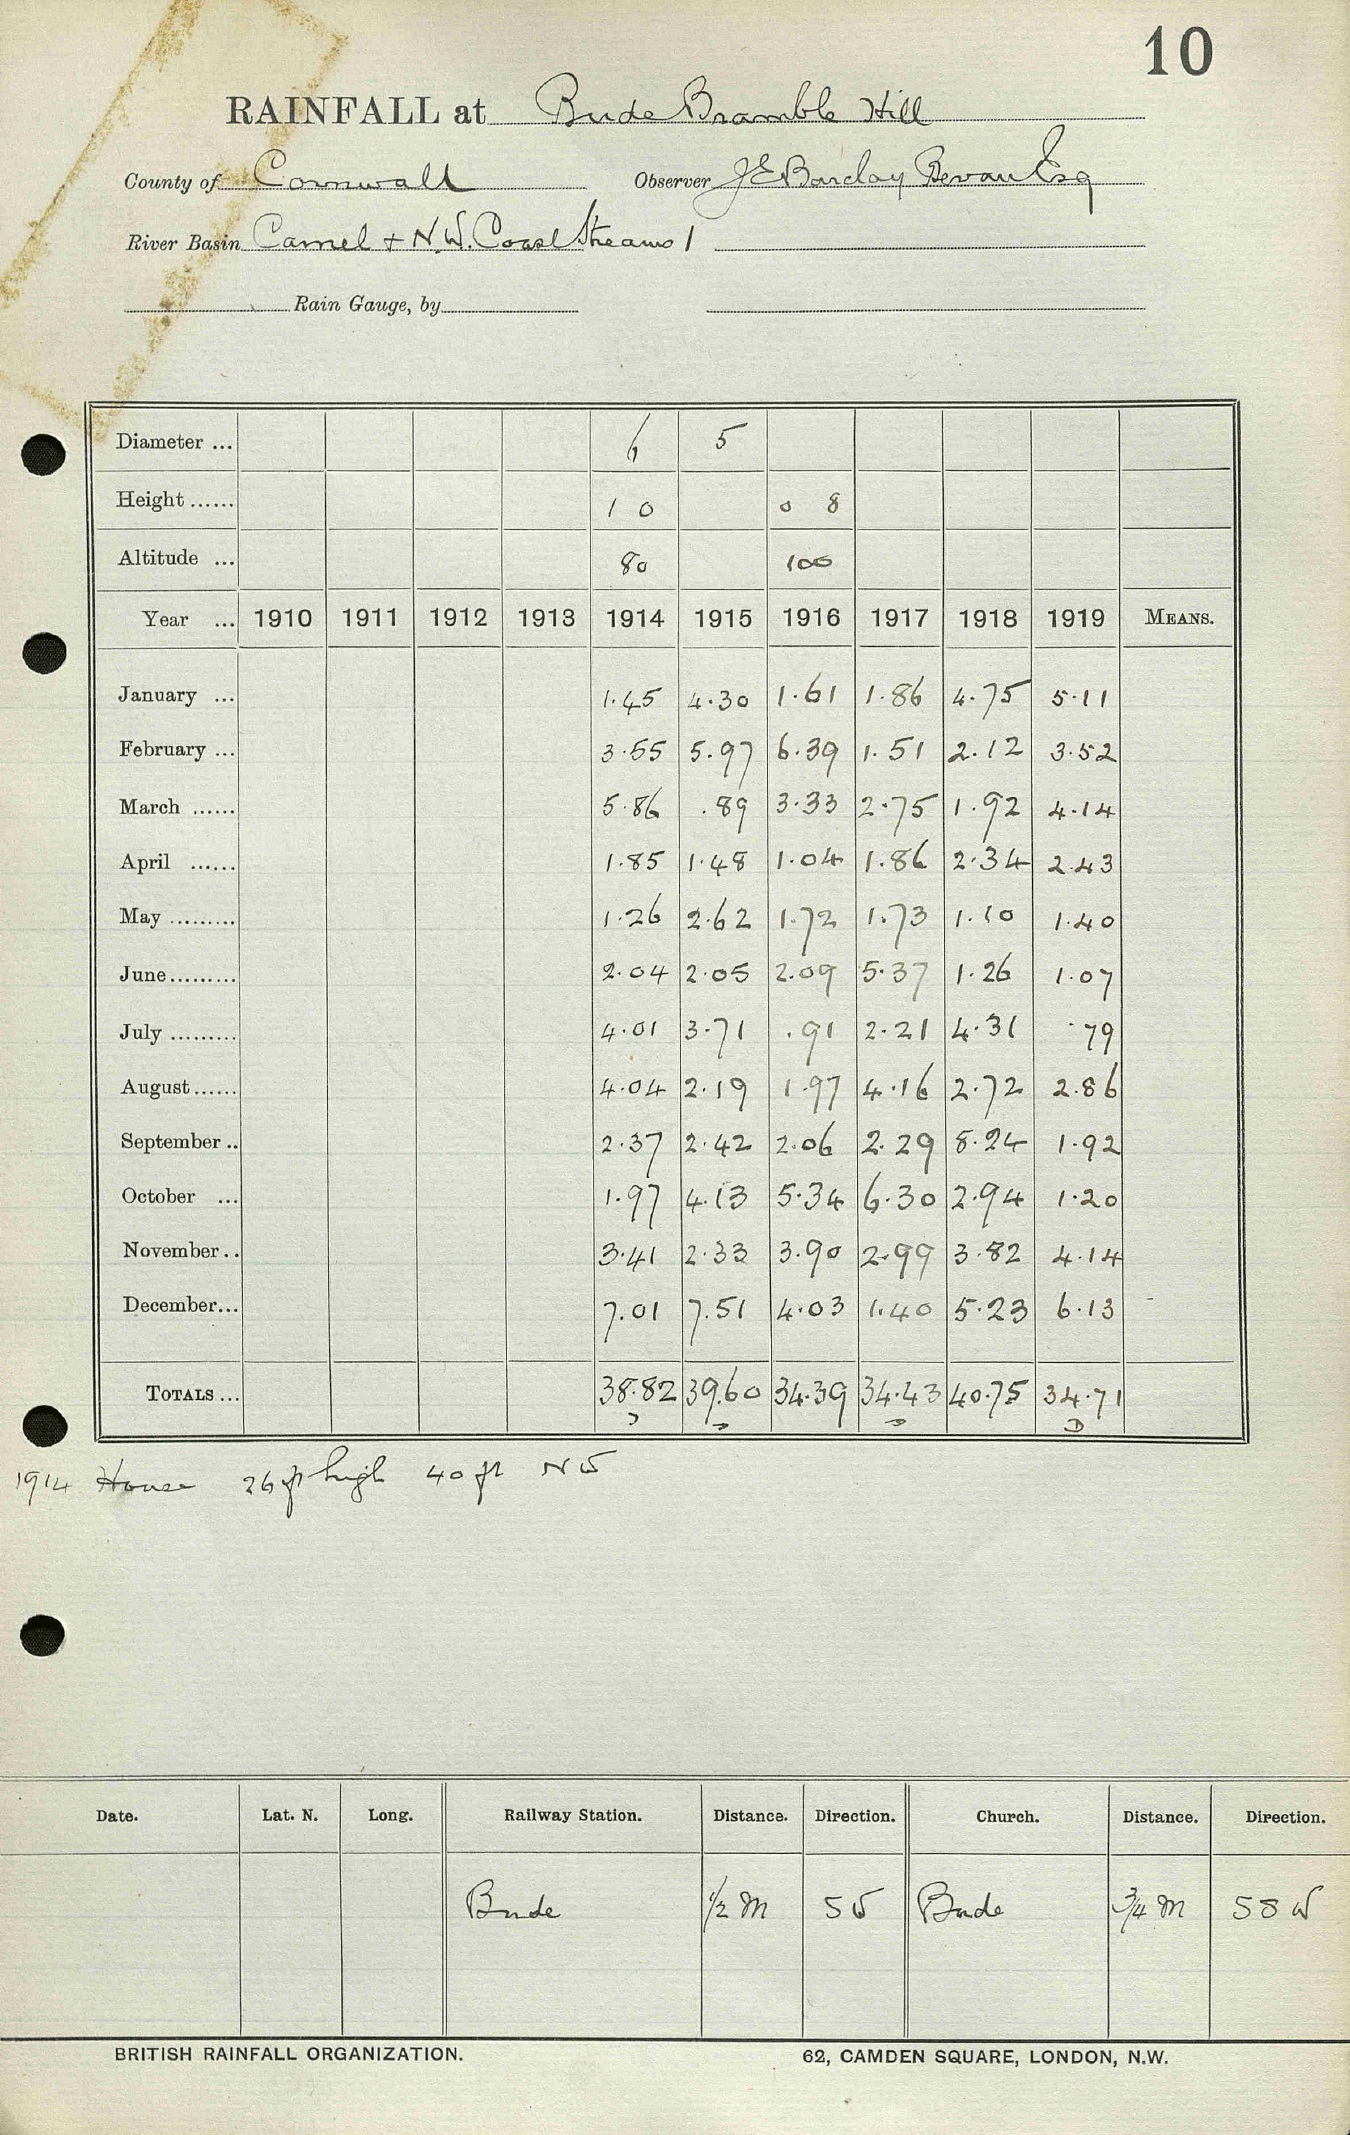 10
RAINFALL at Bude Bramble Hill
County of Cornwall Observer J E Barclay Bevan Esq
River Basin Camel + N.W. Coast Streams 1
Rain Gauge, by
Diameter ... 6 5
Height ...... 1 0 0 8
Altitude ... 80 100
Year ... 1910 1911 1912 1913 1914 1915 1916 1917 1918 1919 MEANS.
January ... 1.45 4.30 1.61 1.86 4.75 5.11
February ... 3.55 5.97 6.39 1.51 2.12 3.52
March ...... 5.86 .89 3.33 2.75 1.92 4.14
April ...... 1.85 1.48 1.04 1.86 2.34 2.43
May ......... 1.26 2.62 1.72 1.73 1.10 1.40
June ......... 2.04 2.05 2.09 5.37 1.26 1.07
July ......... 4.01 3.71 .91 2.21 4.31 .79
August ...... 4.04 2.19 1.97 4.16 2.72 2.86
September .. 2.37 2.42 2.06 2.29 8.24 1.92
October ... 1.97 4.13 5.34 6.30 2.94 1.20
November .. 3.41 2.33 3.90 2.99 3.82 4.14
December ... 7.01 7.51 4.03 1.40 5.23 6.13
TOTALS ... 38.82 39.60 34.39 34.43 40.75 34.71
1914 House 26 ft high 40 ft NW
Date. Lat. N. Long. Railway Station. Distance. Direction. Church. Distance. Direction.
Bude 1/2 M SW Bude 3/4 M SSW
BRITISH RAINFALL ORGANIZATION. 62, CAMDEN SQUARE, LONDON, N.W.